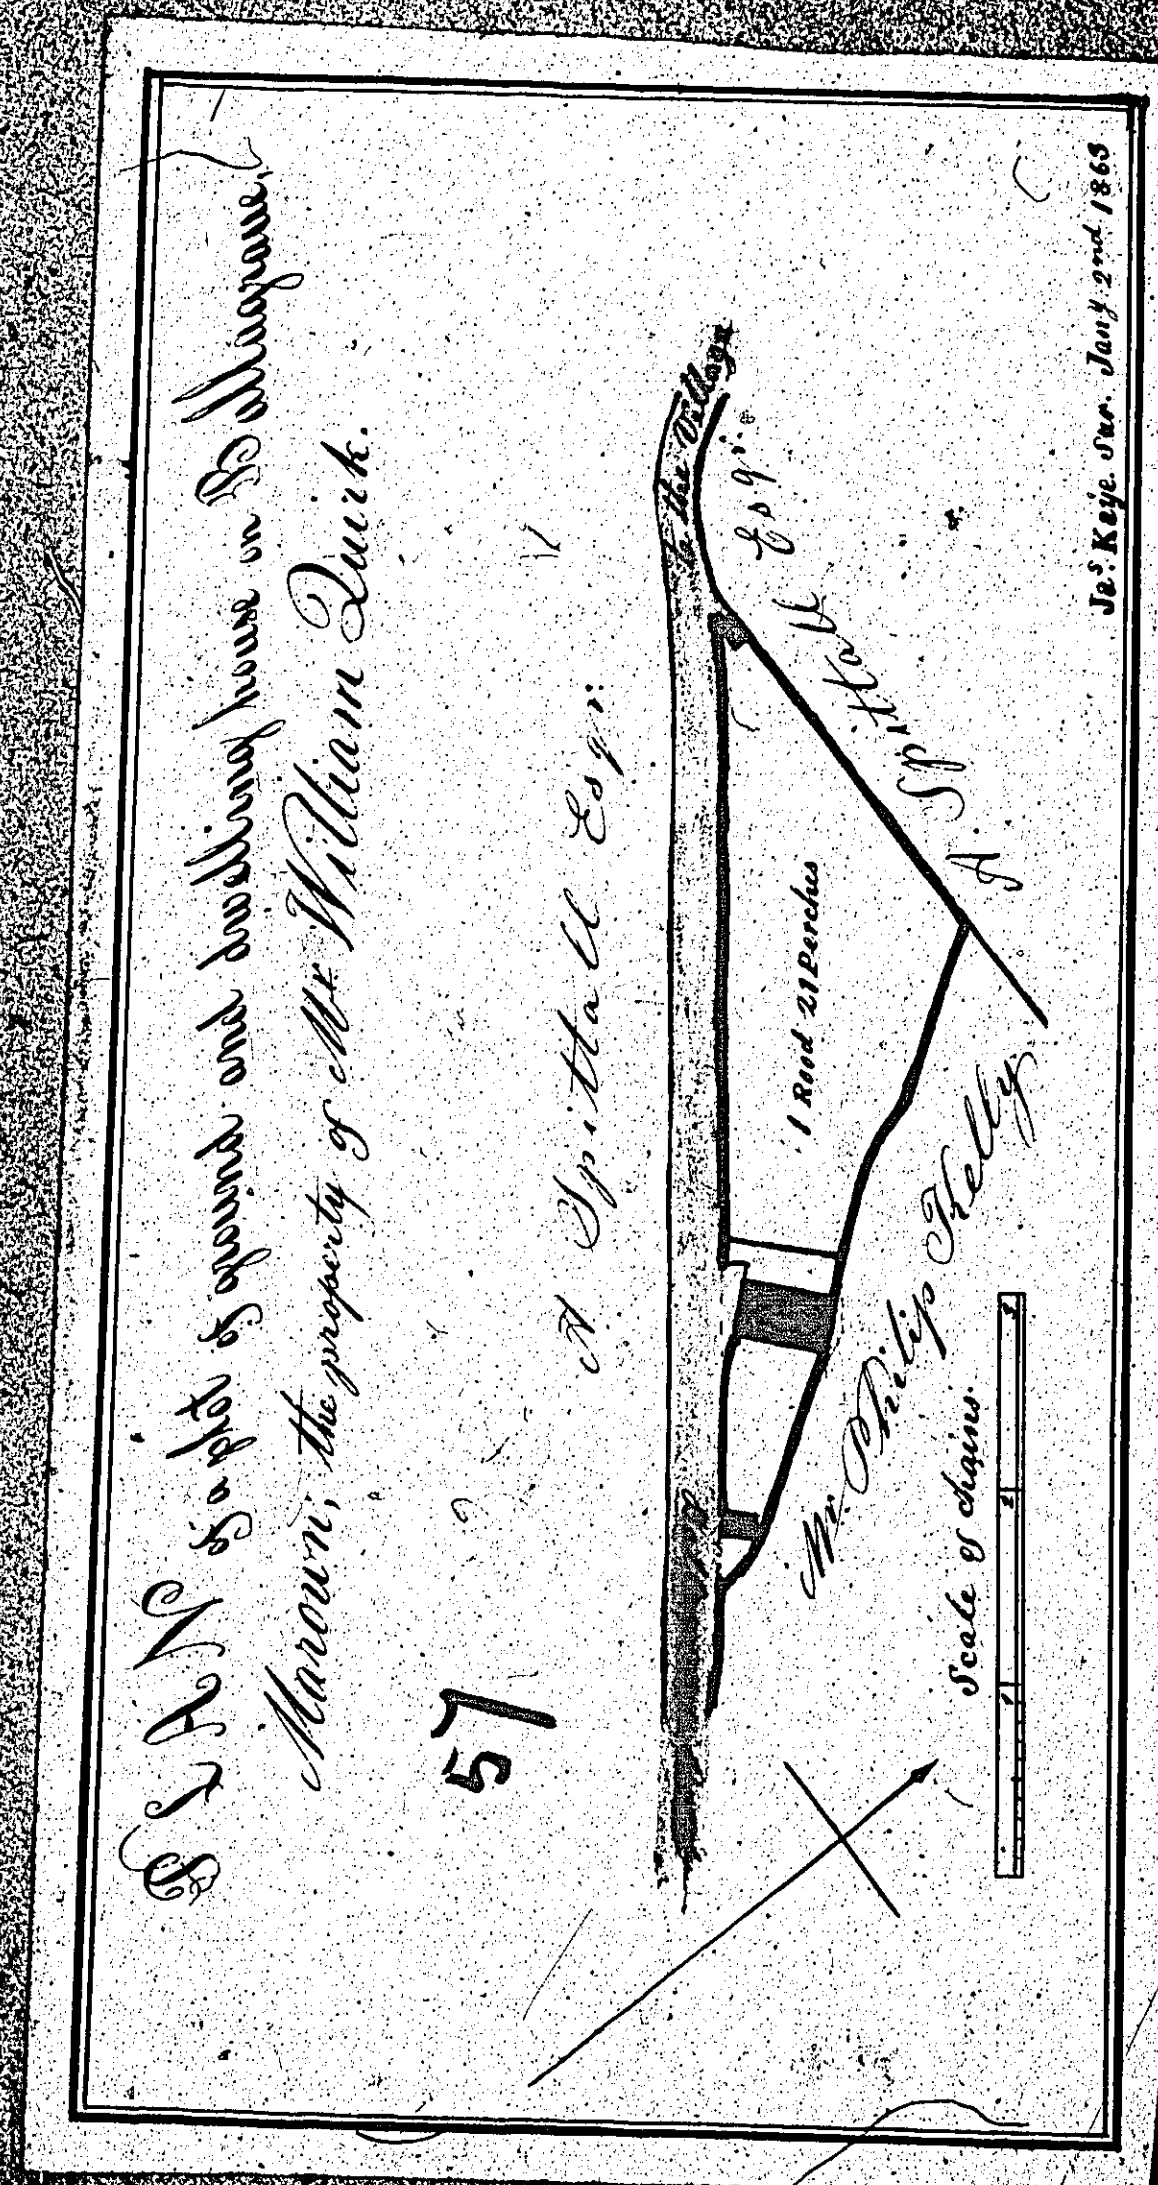 PLAN of a plot of ground and dwelling house in Ballagrave,
Marown, the property of Mr William Quirk.
57
A Spittall Esqr.
to the Village
1 Rood 21 Perches
A Spittall Esqr.
Mr. Philip Kelly
Scale of chains.
1 2 3
Jas. Kaye Sur. Jany 2nd 1863